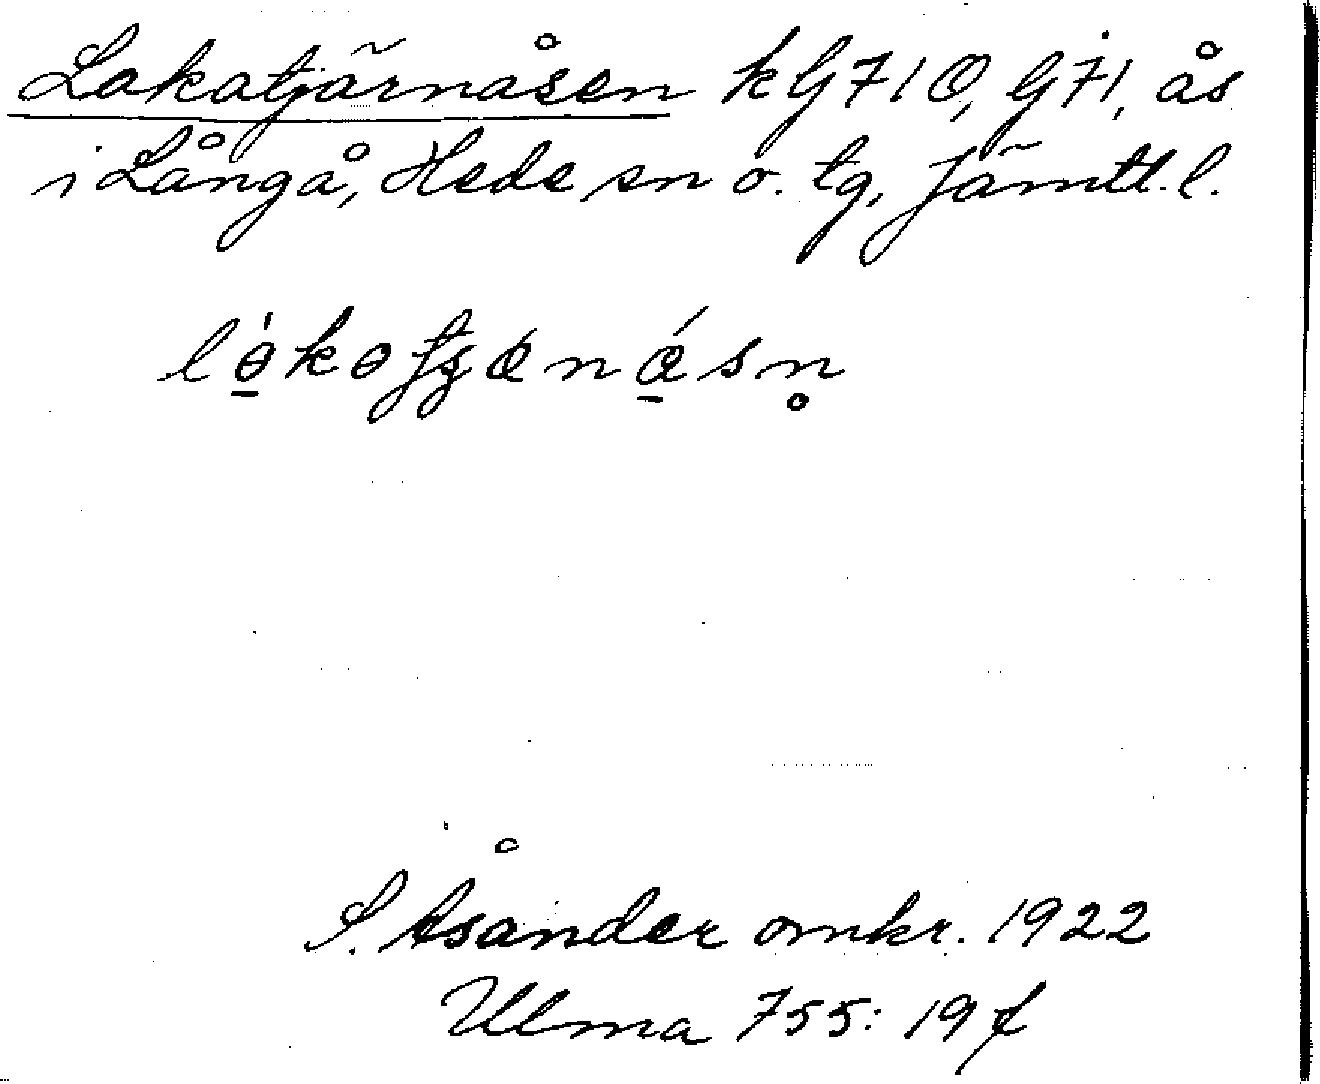 Lokatjärnåsen kG710, G71, ås
i Långå, Hede sn o. tg, Jämtl. l.
S. Åsander omkr. 1922
Ulma 755: 19